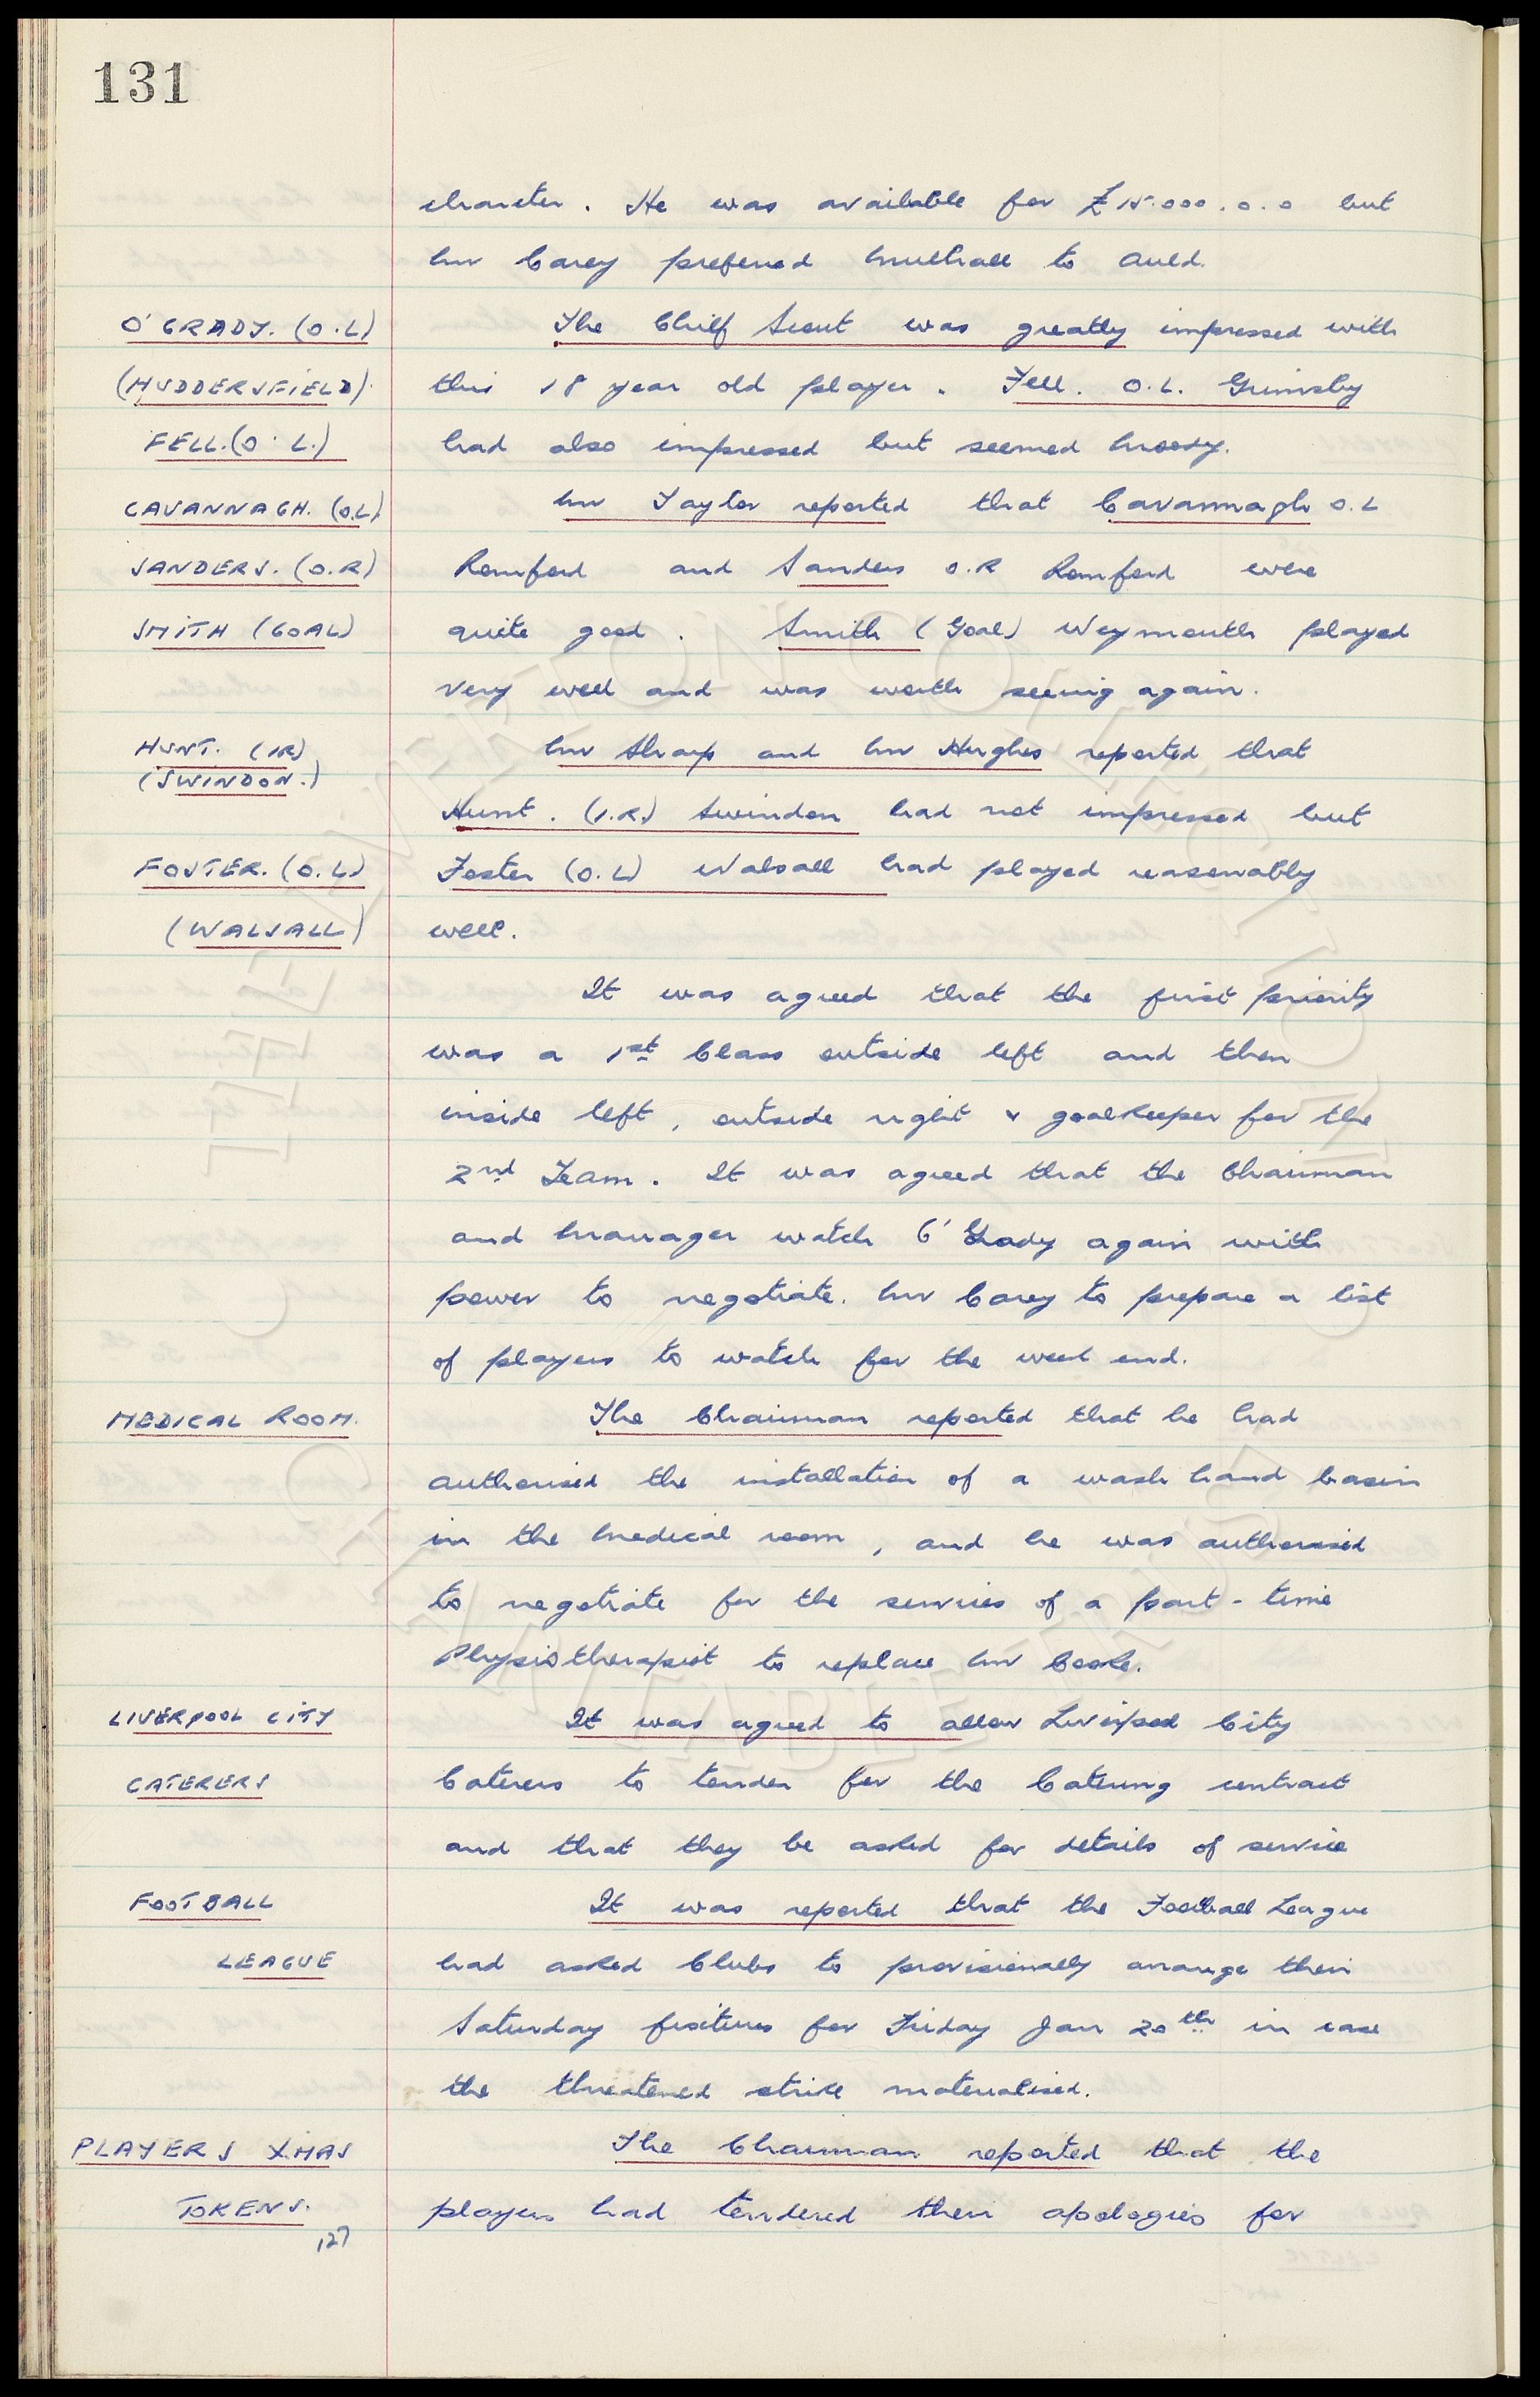 131
character. He was available for £15.000.0.0 but
Mr Carey preferred Mulhall to Auld.
O'GRADY. (O.L) The Chief Scout was greatly impressed with
(HUDDERSFIELD). this 18 year old player. Fell. O.L. Grimsby
FELL. (O.L.) had also impressed but seemed moody.
CAVANNAGH. (O.L) Mr Taylor reported that Cavannagh O.L
SANDERS. (O.R) Romford and Sanders O.R Romford were
SMITH (GOAL) quite good. Smith (Goal) Weymouth played
very well and was worth seeing again.
HUNT. (IR) Mr Sharp and Mr Hughes reported that
(SWINDON.)
Hunt. (I.R.) Swindon had not impressed but
FOSTER. (O.L) Foster (O.L) Walsall had played reasonably
(WALSALL) well.
It was agreed that the first priority
was a 1st Class outside left and then
inside left, outside right & goalkeeper for the
2nd Team. It was agreed that the Chairman
and Manager watch O'Grady again with
power to negotiate. Mr Carey to prepare a list
of players to watch for the week end.
MEDICAL ROOM. The Chairman reported that he had
authorised the installation of a wash hand basin
in the Medical room, and he was authorised
to negotiate for the services of a part-time
Physiotherapist to replace Mr Cooke.
LIVERPOOL CITY It was agreed to allow Liverpool City
CATERERS Caterers to tender for the Catering contract
and that they be asked for details of service
FOOTBALL It was reported that the Football League
LEAGUE had asked Clubs to provisionally arrange their
Saturday fixtures for Friday Jan 20th in case
the threatened strike materialised.
PLAYERS XMAS The Chairman reported that the
TOKENS. players had tendered their apologies for
127